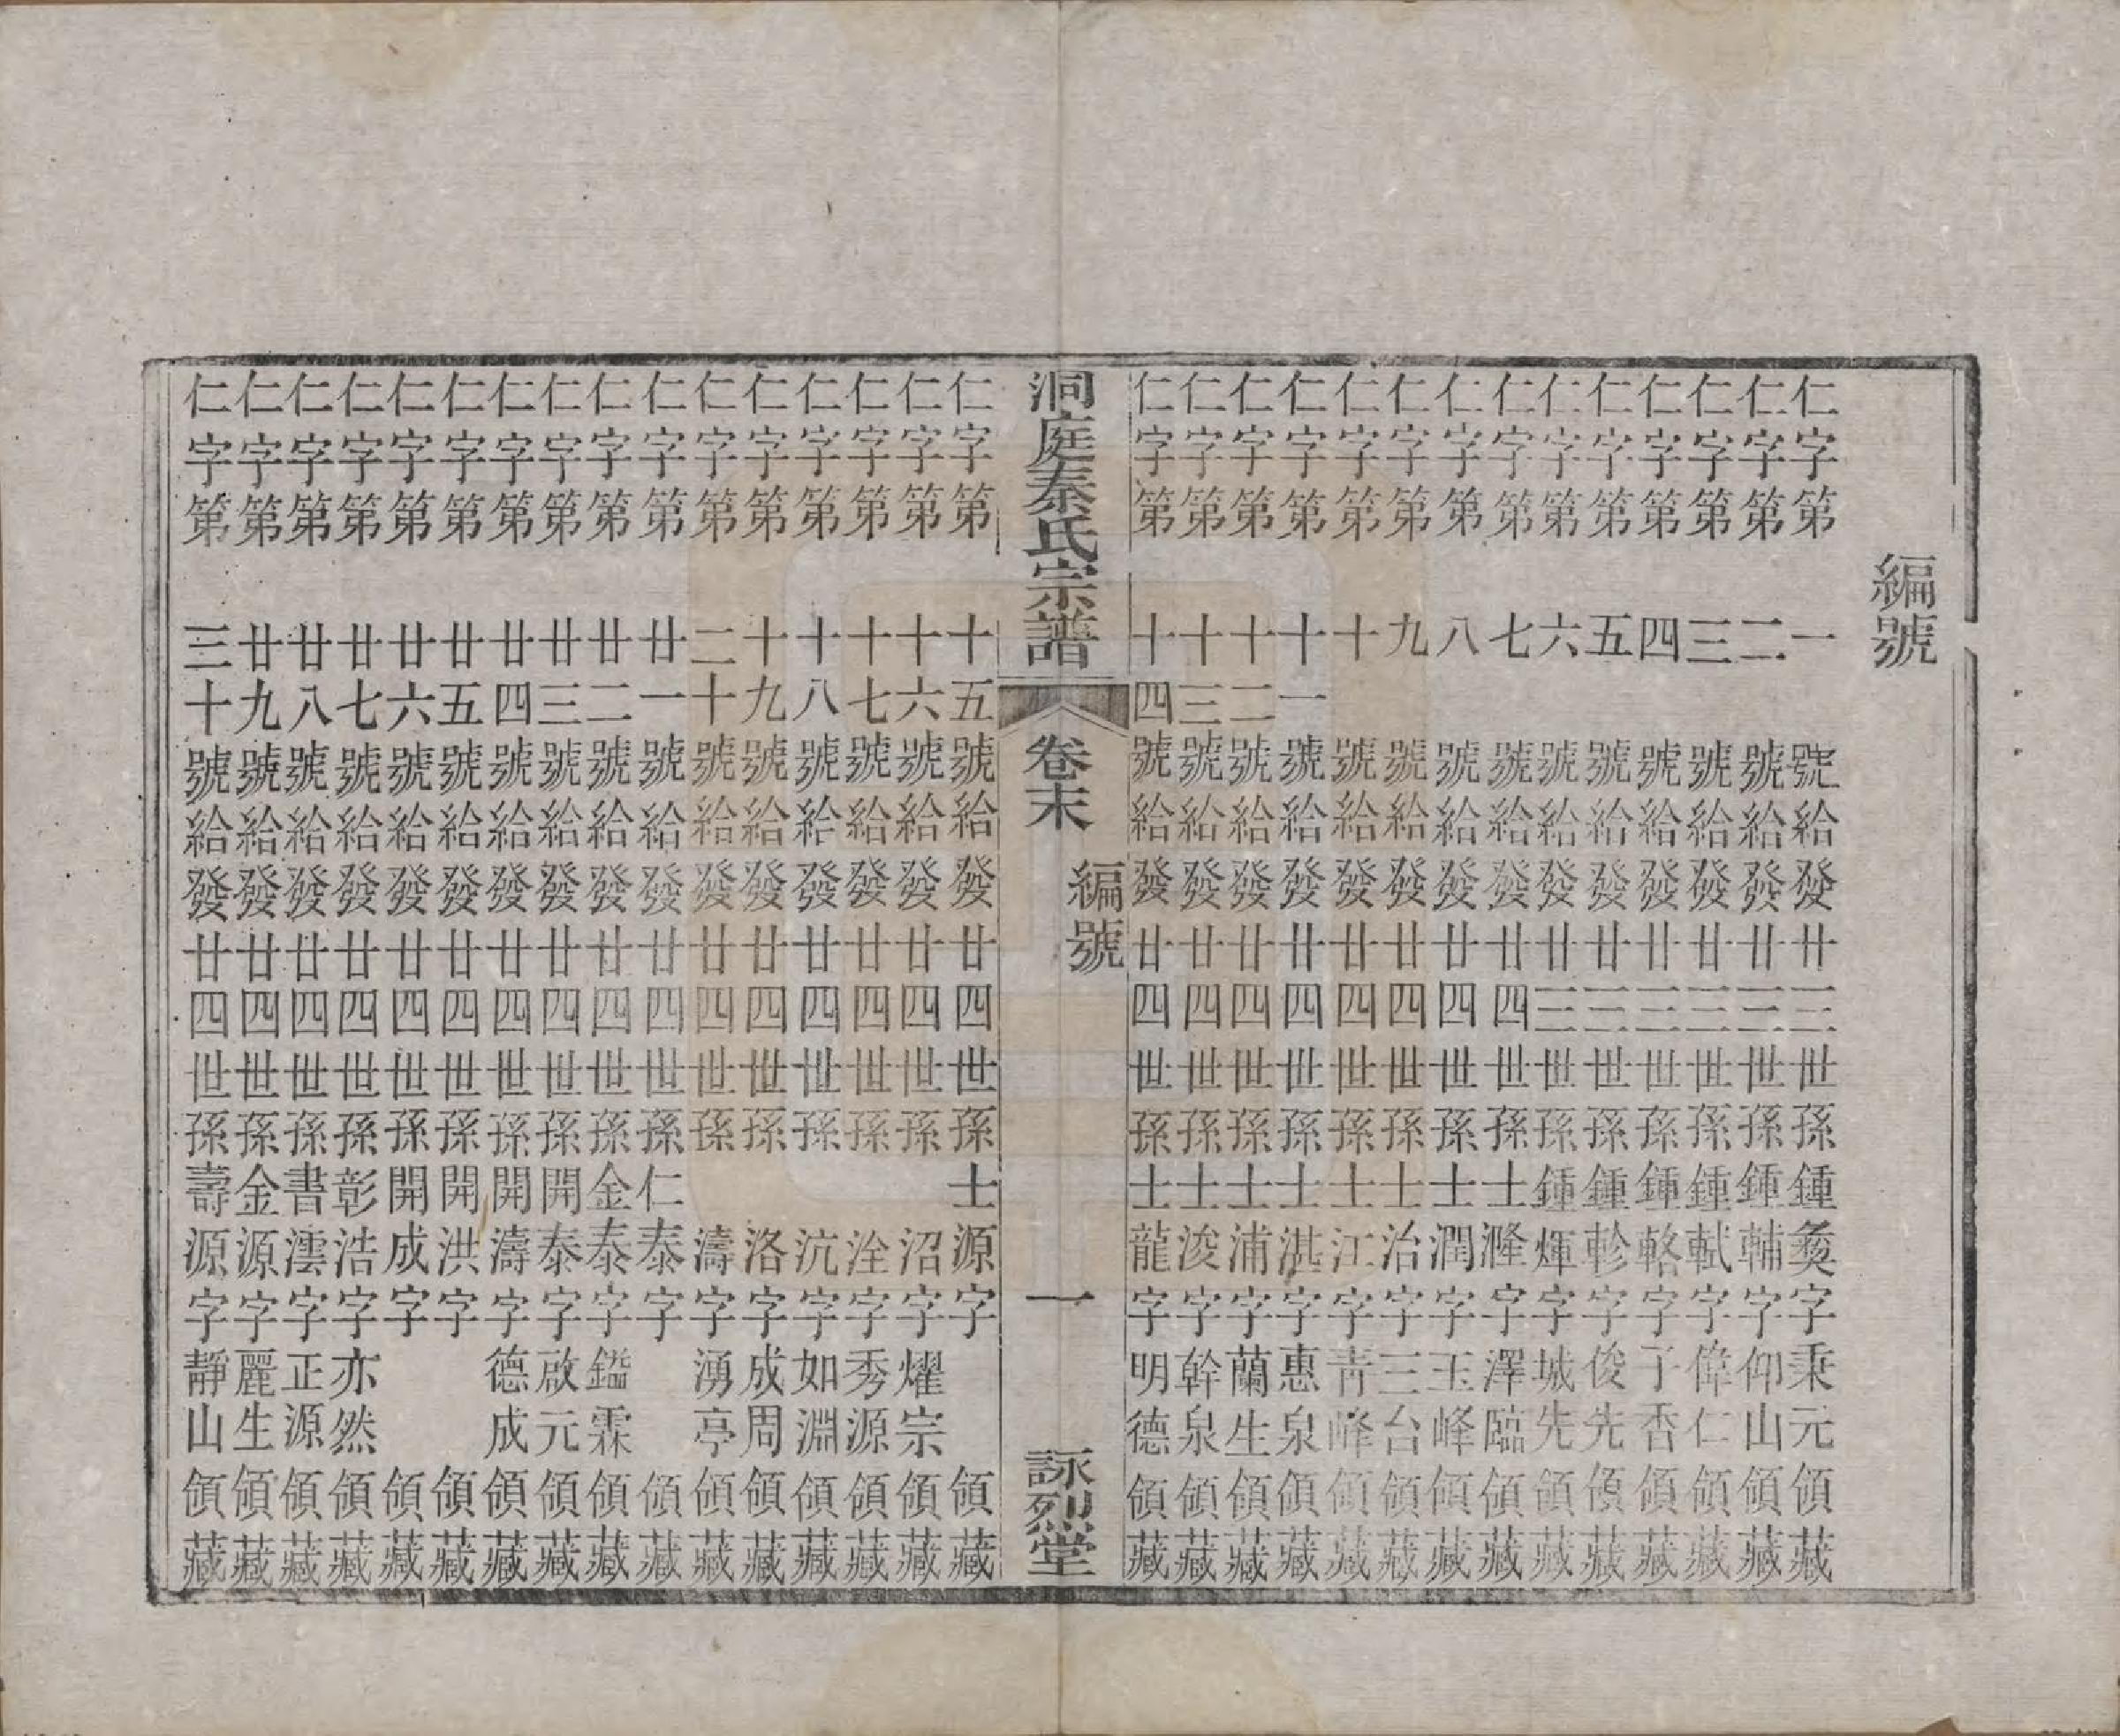 編號
仁字第一號給發廿三世孫鍾夔字秉元領藏
仁字第二號給發廿三世孫鍾輔字仰山領藏
仁字第三號給發廿三世孫鍾軾字偉仁領藏
仁字第四號給發廿三世孫鍾輅字子香領藏
仁字第五號給發廿三世孫鍾軫字俊先領藏
仁字第六號給發廿三世孫鍾煇字城先領藏
仁字第七號給發廿四世孫士溼字澤臨領藏
仁字第八號給發廿四世孫士潤字玉峰領藏
仁字第九號給發廿四世孫士治字三台領藏
仁字第十號給發廿四世孫士江字青峰領藏
仁字第十一號給發廿四世孫士湛字惠泉領藏
仁字第十二號給發廿四世孫士浦字蘭生領藏
仁字第十三號給發廿四世孫士浚字幹泉領藏
仁字第十四號給發廿四世孫士龍字明德領藏
洞庭秦氏宗譜 卷末 編號 一 詠烈堂
仁字第十五號給發廿四世孫士源字領藏
仁字第十六號給發廿四世孫沼字燿宗領藏
仁字第十七號給發廿四世孫洤字秀源領藏
仁字第十八號給發廿四世孫沆字如淵領藏
仁字第十九號給發廿四世孫洛字成周領藏
仁字第二十號給發廿四世孫濤字湧亭領藏
仁字第廿一號給發廿四世孫仁泰字領藏
仁字第廿二號給發廿四世孫金泰字鎰霖領藏
仁字第廿三號給發廿四世孫開泰字啟元領藏
仁字第廿四號給發廿四世孫開濤字德成領藏
仁字第廿五號給發廿四世孫開洪字領藏
仁字第廿六號給發廿四世孫開成字領藏
仁字第廿七號給發廿四世孫彰浩字亦然領藏
仁字第廿八號給發廿四世孫書澐字正源領藏
仁字第廿九號給發廿四世孫金源字麗生領藏
仁字第三十號給發廿四世孫壽源字靜山領藏